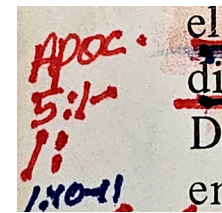 APOC.
5:1-
11
1.40-41
el
di
D
en